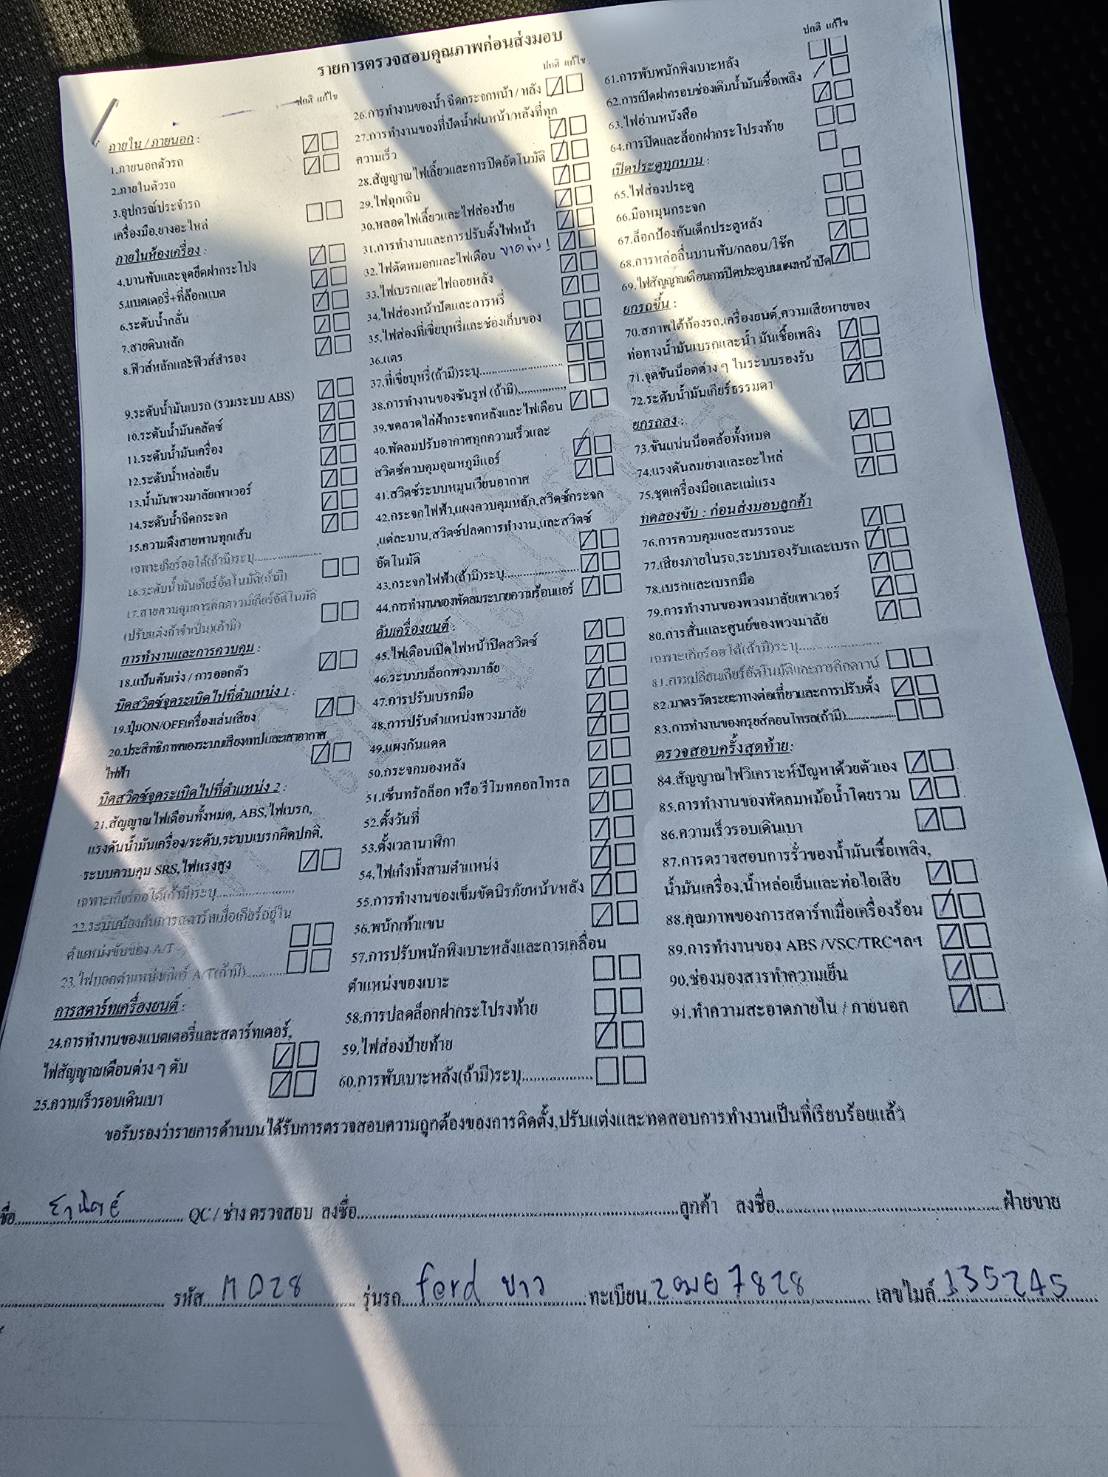 รายการตรวจสอบคุณภาพก่อนส่งมอบ
ปกติ แก้ไข
ภายใน / ภายนอก :
1.ภายนอกตัวรถ
2.ภายในตัวรถ
3.อุปกรณ์ประจำรถ
เครื่องมือ,ยางอะไหล่
ภายในห้องเครื่อง :
4.บานพับและจุดยึดฝากระโปรง
5.แบตเตอรี่+ที่ล็อกแบต
6.ระดับน้ำกลั่น
7.สายดินหลัก
8.ฟิวส์หลักและฟิวส์สำรอง
9.ระดับน้ำมันเบรก (รวมระบบ ABS)
10.ระดับน้ำมันคลัตช์
11.ระดับน้ำมันเครื่อง
12.ระดับน้ำหล่อเย็น
13.น้ำมันพวงมาลัยเพาเวอร์
14.ระดับน้ำฉีดกระจก
15.ความตึงสายพานทุกเส้น
เฉพาะเกียร์ออโต้(ถ้ามี)ระบุ
16.ระดับน้ำมันเกียร์อัตโนมัติ(ถ้ามี)
17.สายควบคุมการคิกดาวน์เกียร์อัตโนมัติ
(ปรับแต่งถ้าจำเป็น)(ถ้ามี)
การทำงานและการควบคุม :
18.แป้นคันเร่ง / การออกตัว
บิดสวิตซ์จุดระเบิดไปที่ตำแหน่ง 1 :
19.ปุ่มON/OFFเครื่องเล่นเสียง
20.ประสิทธิภาพของระบบเสียงเทปและเสาอากาศ
ไฟฟ้า
บิดสวิตซ์จุดระเบิดไปที่ตำแหน่ง 2 :
21.สัญญาณไฟเตือนทั้งหมด, ABS,ไฟเบรก,
แรงดันน้ำมันเครื่อง/ระดับ,ระบบเบรกผิดปกติ,
ระบบควบคุม SRS,ไฟแรงสูง
เฉพาะเกียร์ออโต้(ถ้ามี)ระบุ
22.ระบบป้องกันการสตาร์ทเมื่อเกียร์อยู่ใน
ตำแหน่งขับของ A/T
23.ไฟบอกตำแหน่งเกียร์ A/T(ถ้ามี)
การสตาร์ทเครื่องยนต์ :
24.การทำงานของแบตเตอรี่และสตาร์ทเตอร์,
ไฟสัญญาณเตือนต่าง ๆ ดับ
25.ความเร็วรอบเดินเบา
ปกติ แก้ไข
26.การทำงานของน้ำ ฉีดกระจกหน้า / หลัง
27.การทำงานของที่ปัดน้ำฝนหน้า/หลังที่ทุก
ความเร็ว
28.สัญญาณไฟเลี้ยวและการปิดอัตโนมัติ
29.ไฟฉุกเฉิน
30.หลอดไฟเลี้ยวและไฟส่องป้าย
31.การทำงานและการปรับตั้งไฟหน้า
32.ไฟตัดหมอกและไฟเตือน
33.ไฟเบรกและไฟถอยหลัง
34.ไฟส่องหน้าปัดและการหรี่
35.ไฟส่องที่เขี่ยบุหรี่และช่องเก็บของ
36.แตร
37.ที่เขี่ยบุหรี่(ถ้ามี)ระบุ
38.การทำงานของซันรูฟ (ถ้ามี)
39.ขดลวดไล่ฝ้ากระจกหลังและไฟเตือน
40.พัดลมปรับอากาศทุกความเร็วและ
สวิตซ์ควบคุมอุณหภูมิแอร์
41.สวิตซ์ระบบหมุนเวียนอากาศ
42.กระจกไฟฟ้า,แผงควบคุมหลัก,สวิตซ์กระจก
แต่ละบาน,สวิตซ์ปลดการทำงาน,และสวิตซ์
อัตโนมัติ
43.กระจกไฟฟ้า(ถ้ามี)ระบุ
44.การทำงานของพัดลมระบายความร้อนแอร์
ดับเครื่องยนต์ :
45.ไฟเตือนเปิดไฟหน้าปิดสวิตซ์
46.ระบบบล็อกพวงมาลัย
47.การปรับเบรกมือ
48.การปรับตำแหน่งพวงมาลัย
49.แผงกันแดด
50.กระจกมองหลัง
51.เซ็นทรัลล็อก หรือ รีโมทคอลโทรล
52.ตั้งวันที่
53.ตั้งเวลานาฬิกา
54.ไฟเก๋งทั้งสามตำแหน่ง
55.การทำงานของเข็มขัดนิรภัยหน้า/หลัง
56.พนักเท้าแขน
57.การปรับพนักพิงเบาะหลังและการเคลื่อน
ตำแหน่งของเบาะ
58.การปลดล็อกฝากระโปรงท้าย
59.ไฟส่องป้ายท้าย
60.การพับเบาะหลัง(ถ้ามี)ระบุ
ปกติ แก้ไข
61.การพับพนักพิงเบาะหลัง
62.การเปิดฝาครอบช่องเติมน้ำมันเชื้อเพลิง
63.ไฟอ่านหนังสือ
64.การปิดและล็อกฝากระโปรงท้าย
เปิดประตูทุกบาน :
65.ไฟส่องประตู
66.มือหมุนกระจก
67.ล็อกป้องกันเด็กประตูหลัง
68.การหล่อลื่นบานพับ/กลอน/โช๊ก
69.ไฟสัญญาณเตือนการปิดประตูบนแผงหน้าปัด
ยกรถขึ้น :
70.สภาพใต้ท้องรถ,เครื่องยนต์,ความเสียหายของ
ท่อทางน้ำมันเบรกและน้ำ มันเชื้อเพลิง
71.จุดขันน็อตต่าง ๆ ในระบบรองรับ
72.ระดับน้ำมันเกียร์ธรรมดา
ยกรถลง :
73.ขันแน่นน็อตล้อทั้งหมด
74.แรงดันลมยางและอะไหล่
75.ชุดเครื่องมือและแม่แรง
ทดลองขับ : ก่อนส่งมอบลูกค้า
76.การควบคุมและสมรรถนะ
77.เสียงภายในรถ,ระบบรองรับและเบรก
78.เบรกและเบรกมือ
79.การทำงานของพวงมาลัยเพาเวอร์
80.การสั่นและศูนย์ของพวงมาลัย
เฉพาะเกียร์ออโต้(ถ้ามี)ระบุ
81.การเปลี่ยนเกียร์อัตโนมัติและการคิกดาวน์
82.มาตรวัดระยะทางต่อเที่ยวและการปรับตั้ง
83.การทำงานของครุยส์คอนโทรล(ถ้ามี)
ตรวจสอบครั้งสุดท้าย:
84.สัญญาณไฟวิเคราะห์ปัญหาด้วยตัวเอง
85.การทำงานของพัดลมหม้อน้ำโดยรวม
86.ความเร็วรอบเดินเบา
87.การตรวจสอบการรั่วของน้ำมันเชื้อเพลิง,
น้ำมันเครื่อง,น้ำหล่อเย็นและท่อไอเสีย
88.คุณภาพของการสตาร์ทเมื่อเครื่องร้อน
89.การทำงานของ ABS /VSC/TRCฯลฯ
90.ช่องมองสารทำความเย็น
91.ทำความสะอาดภายใน / ภายนอก
ขอรับรองว่ารายการด้านบนได้รับการตรวจสอบความถูกต้องของการติดตั้ง,ปรับแต่งและทดสอบการทำงานเป็นที่เรียบร้อยแล้ว
ชื่อ QC / ช่าง ตรวจสอบ ลงชื่อ ลูกค้า ลงชื่อ ฝ่ายขาย
รหัส MD28 รุ่นรถ ford ขาว ทะเบียน 7828 เลขไมล์ 135245